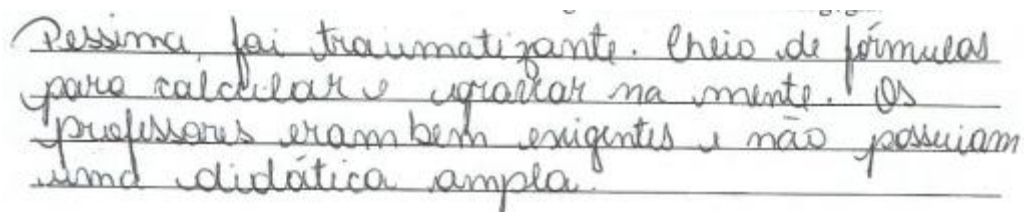 Pessima, foi traumatizante. Cheio de fórmulas
para calcular e gravar na mente. Os
professores eram bem exigentes e não possuiam
uma didática ampla.